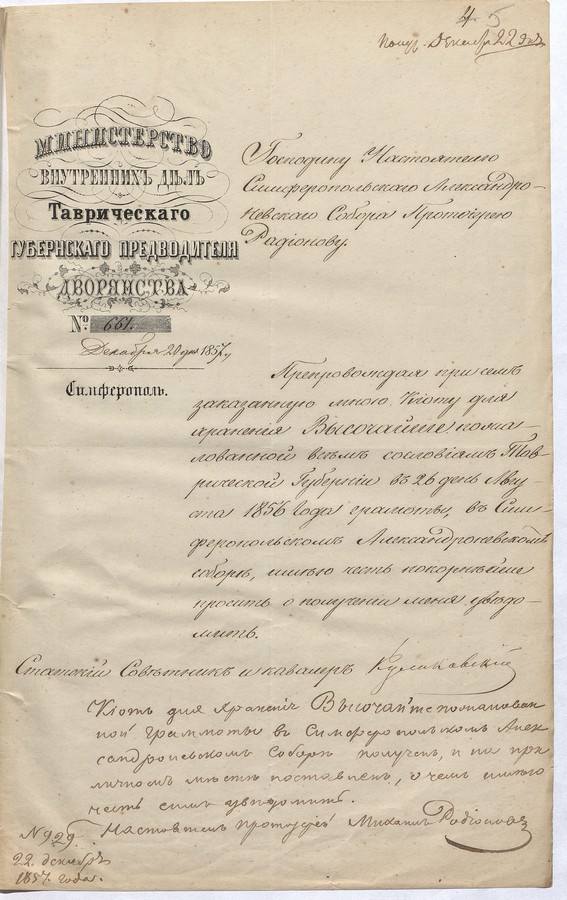 4 5
Получ. Декабря 22 дня
МИНИСТЕРСТВО
ВНУТРЕННИХЪ ДѢЛЪ
Таврическаго
ГУБЕРНСКАГО ПРЕДВОДИТЕЛЯ
ДВОРЯНСТВА
№ 661.
Декабря 20 дня 1857 г.
Симферополь.
Господину Настоятелю
Симферопольскаго Александро-
Невскаго Собора Протоіерею
Радіонову.
Препровождая при семъ
заказанную мною Кіоту для
храненія Высочайше пожа-
лованной всѣмъ сословіямъ Тав-
рической Губерніи въ 26 день Авгу-
ста 1856 года грамоты, въ Сим-
феропольскомъ Александроневскомъ
соборѣ, имѣю честь покорнѣйше
просить о полученіи меня увѣдо-
мить.
Статскій Совѣтникъ и кавалеръ
Кіотъ для храненія Высочайше пожалован-
ной грамоты въ Симферопольскомъ Алек-
сандроневскомъ Соборѣ полученъ, и на при-
личномъ мѣстѣ поставленъ, о чемъ имѣю
честь симъ увѣдомить.
Настоятель протоіерей Михаилъ Родіоновъ
№ 929.
22 декабря
1857 года.